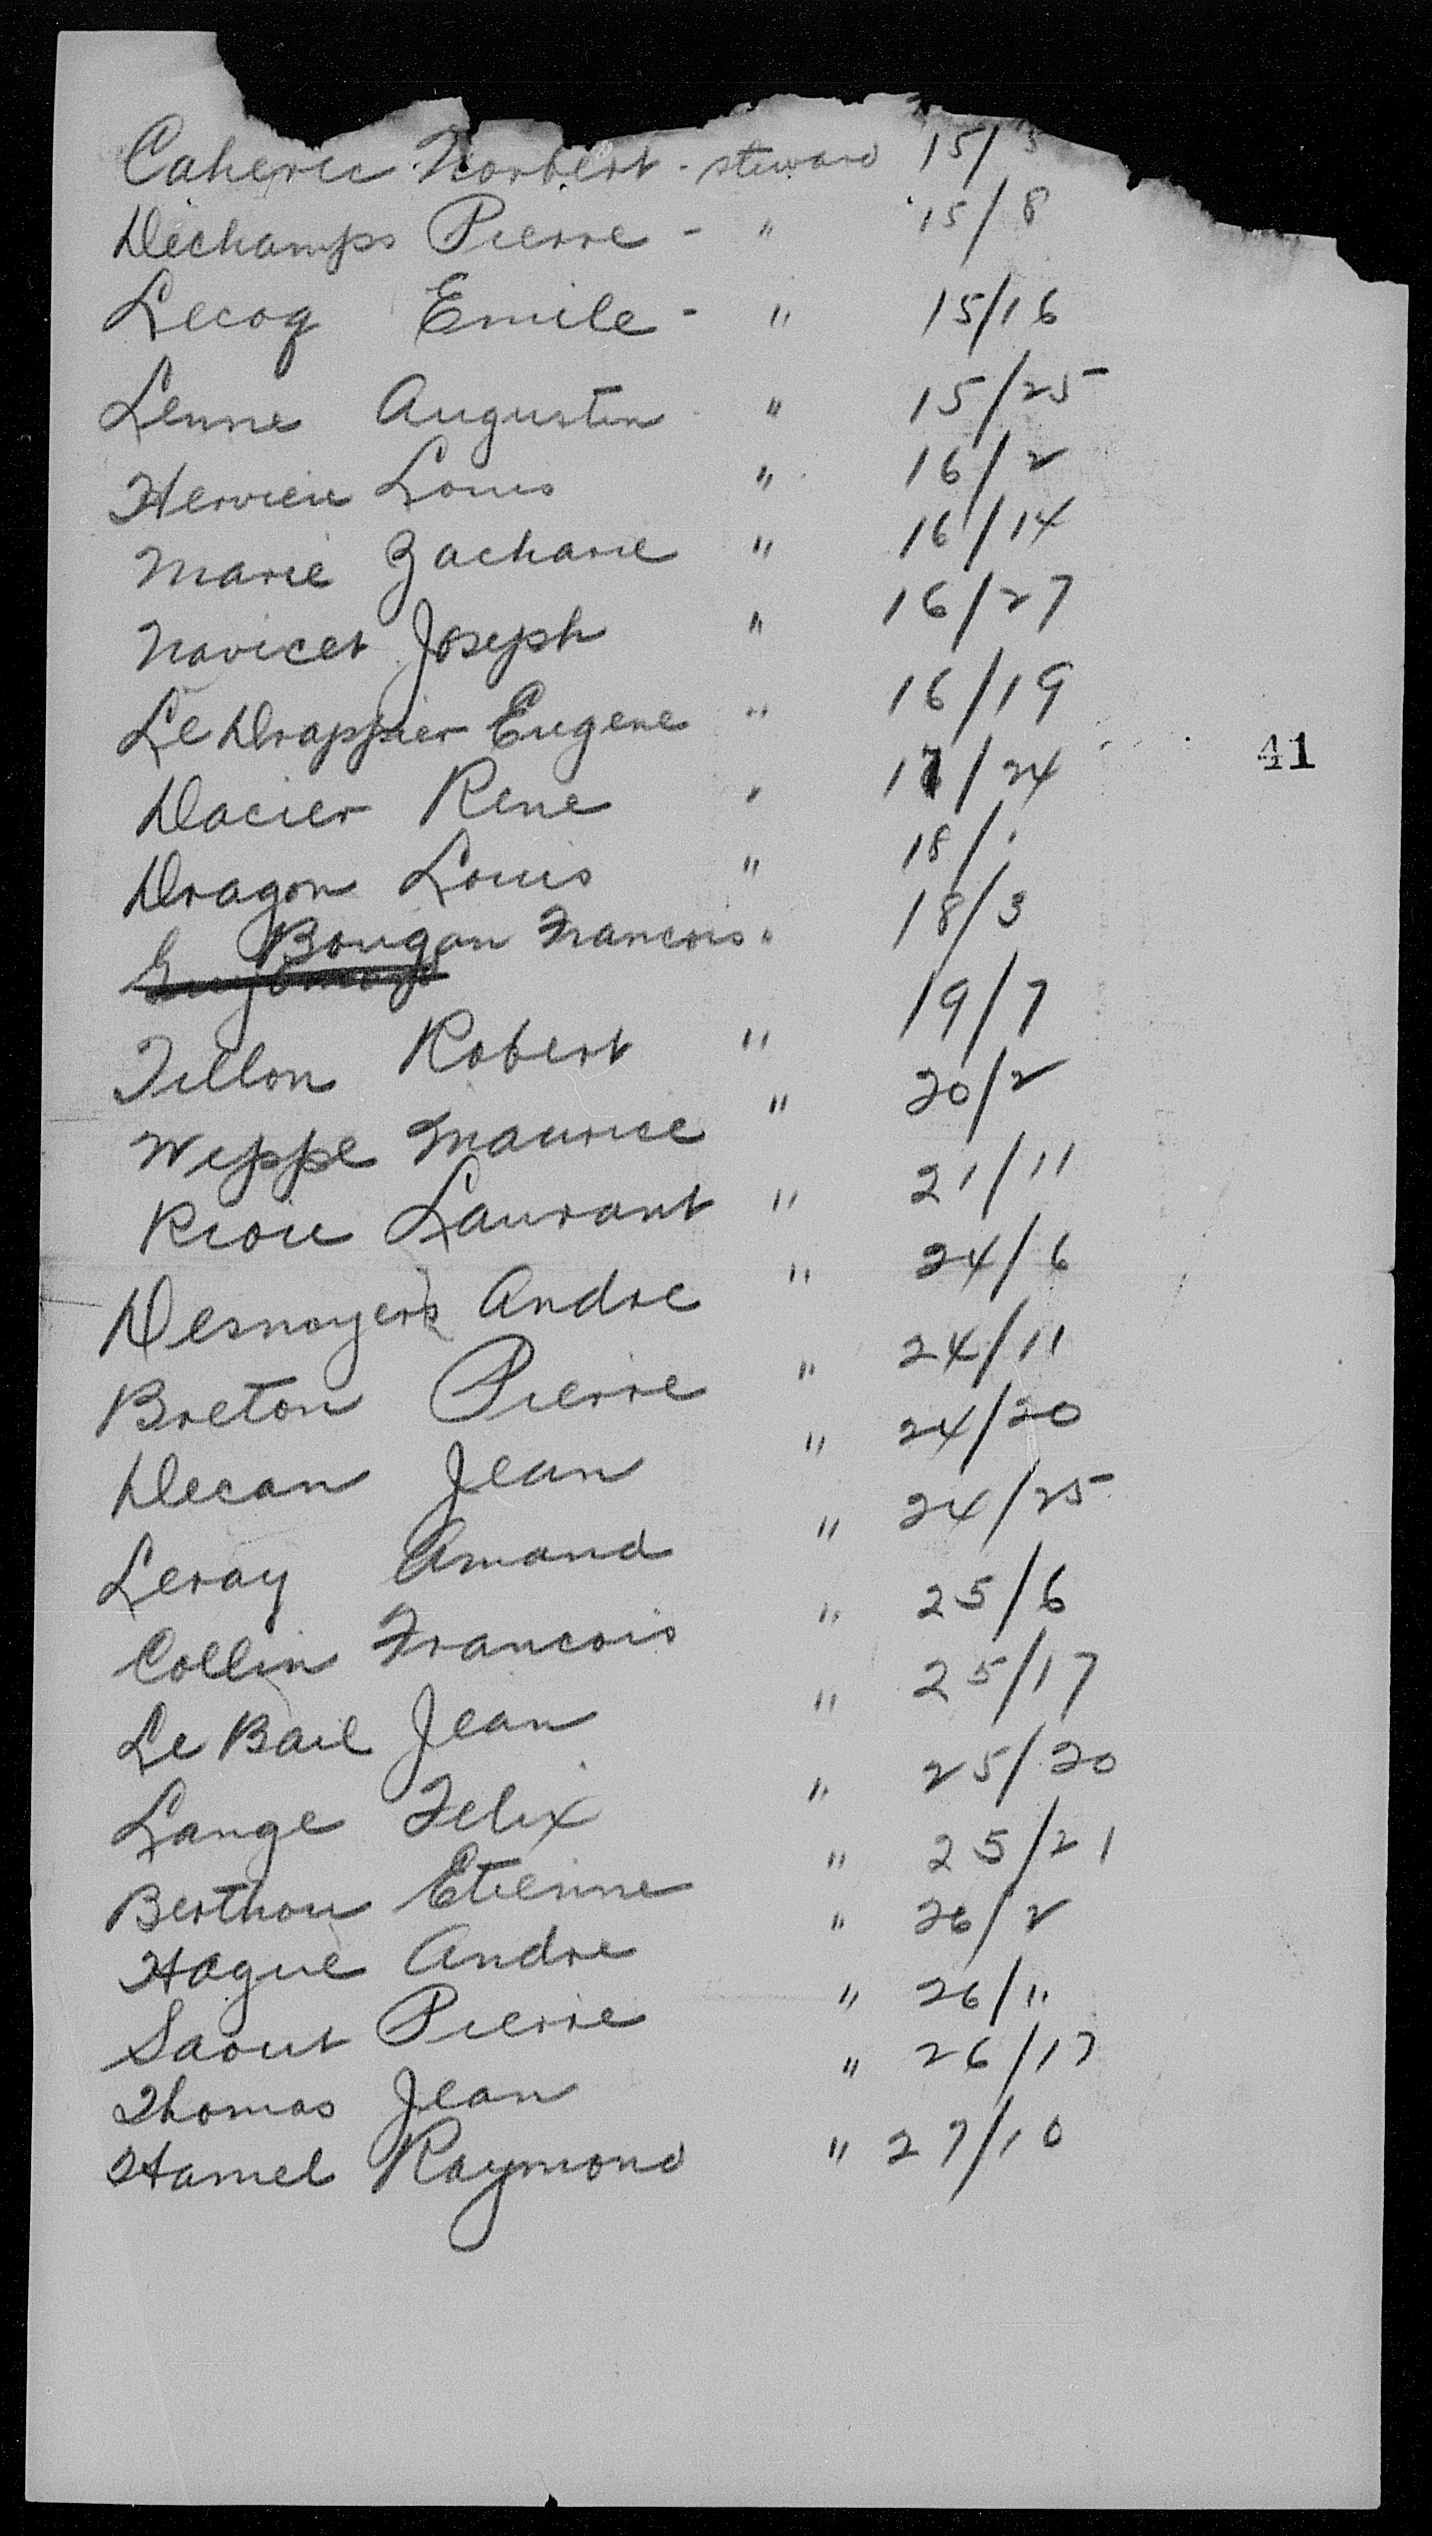 Caherec Norbert - steward 15/3
Dechamps Pierre - " 15/8
Lecoq Emile - " 15/16
Lenne Augustin " 15/25
Hervieu Louis " 16/2
Marie Zacharie " 16/14
Novicet Joseph " 16/27
Le Drappier Eugene " 16/19
41
Dacier Rene " 17/24
Dragon Louis " 18/1
Bougan Francois " 18/3
Guyomard
Tillon Robert " 19/7
Weppe Maurice " 20/2
Riou Laurant " 21/11
Desnoyers Andre " 24/6
Breton Pierre " 24/11
Decan Jean " 24/20
Leray Amand " 24/25
Collin Francois " 25/6
Le Bail Jean " 25/17
Lange Felix " 25/20
Berthou Etienne " 25/21
Hague Andre " 26/2
Saout Pierre " 26/11
Thomas Jean " 26/17
Hamel Raymond " 27/10